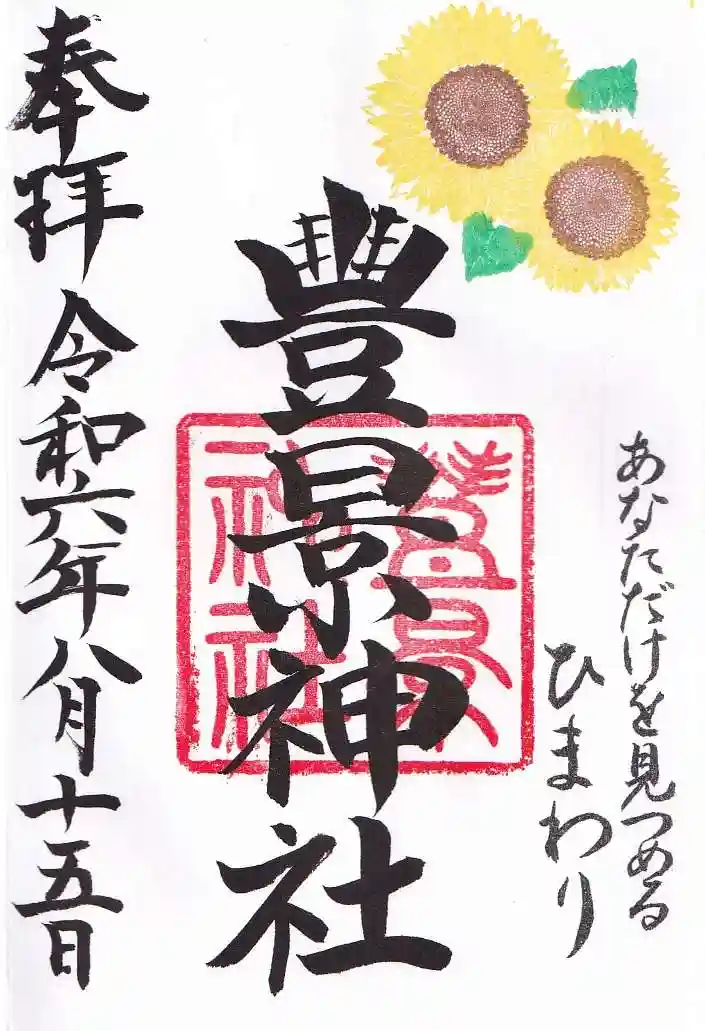 あなただけを見つめる
ひまわり
豊景神社
豊景神社
奉拝 令和六年八月十五日